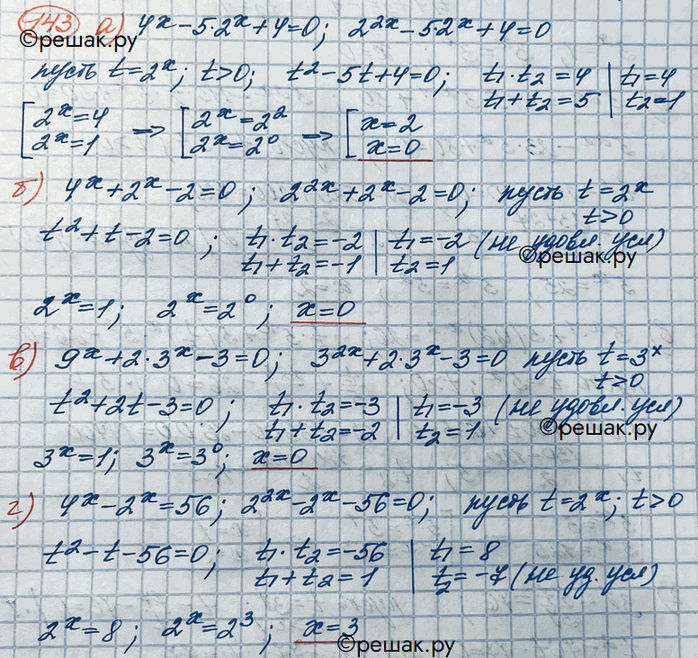 743 а) 4^x - 5·2^x + 4 = 0; 2^2x - 5·2^x + 4 = 0
©решак.ру
пусть t = 2^x; t > 0; t² - 5t + 4 = 0; t₁·t₂ = 4 | t₁ = 4
t₁ + t₂ = 5 | t₂ = 1
[2^x = 4 => [2^x = 2² => [x = 2
2^x = 1 2^x = 2⁰ x = 0
б) 4^x + 2^x - 2 = 0; 2^2x + 2^x - 2 = 0; пусть t = 2^x
t > 0
t² + t - 2 = 0; t₁·t₂ = -2 | t₁ = -2 (не удовл. усл)
t₁ + t₂ = -1 | t₂ = 1
©решак.ру
2^x = 1; 2^x = 2⁰; x = 0
в) 9^x + 2·3^x - 3 = 0; 3^2x + 2·3^x - 3 = 0 пусть t = 3^x
t > 0
t² + 2t - 3 = 0; t₁·t₂ = -3 | t₁ = -3 (не удовл. усл)
t₁ + t₂ = -2 | t₂ = 1
©решак.ру
3^x = 1; 3^x = 3⁰; x = 0
г) 4^x - 2^x = 56; 2^2x - 2^x - 56 = 0; пусть t = 2^x; t > 0
t² - t - 56 = 0; t₁·t₂ = -56 | t₁ = 8
t₁ + t₂ = 1 | t₂ = -7 (не уд. усл)
2^x = 8; 2^x = 2³; x = 3
©решак.ру